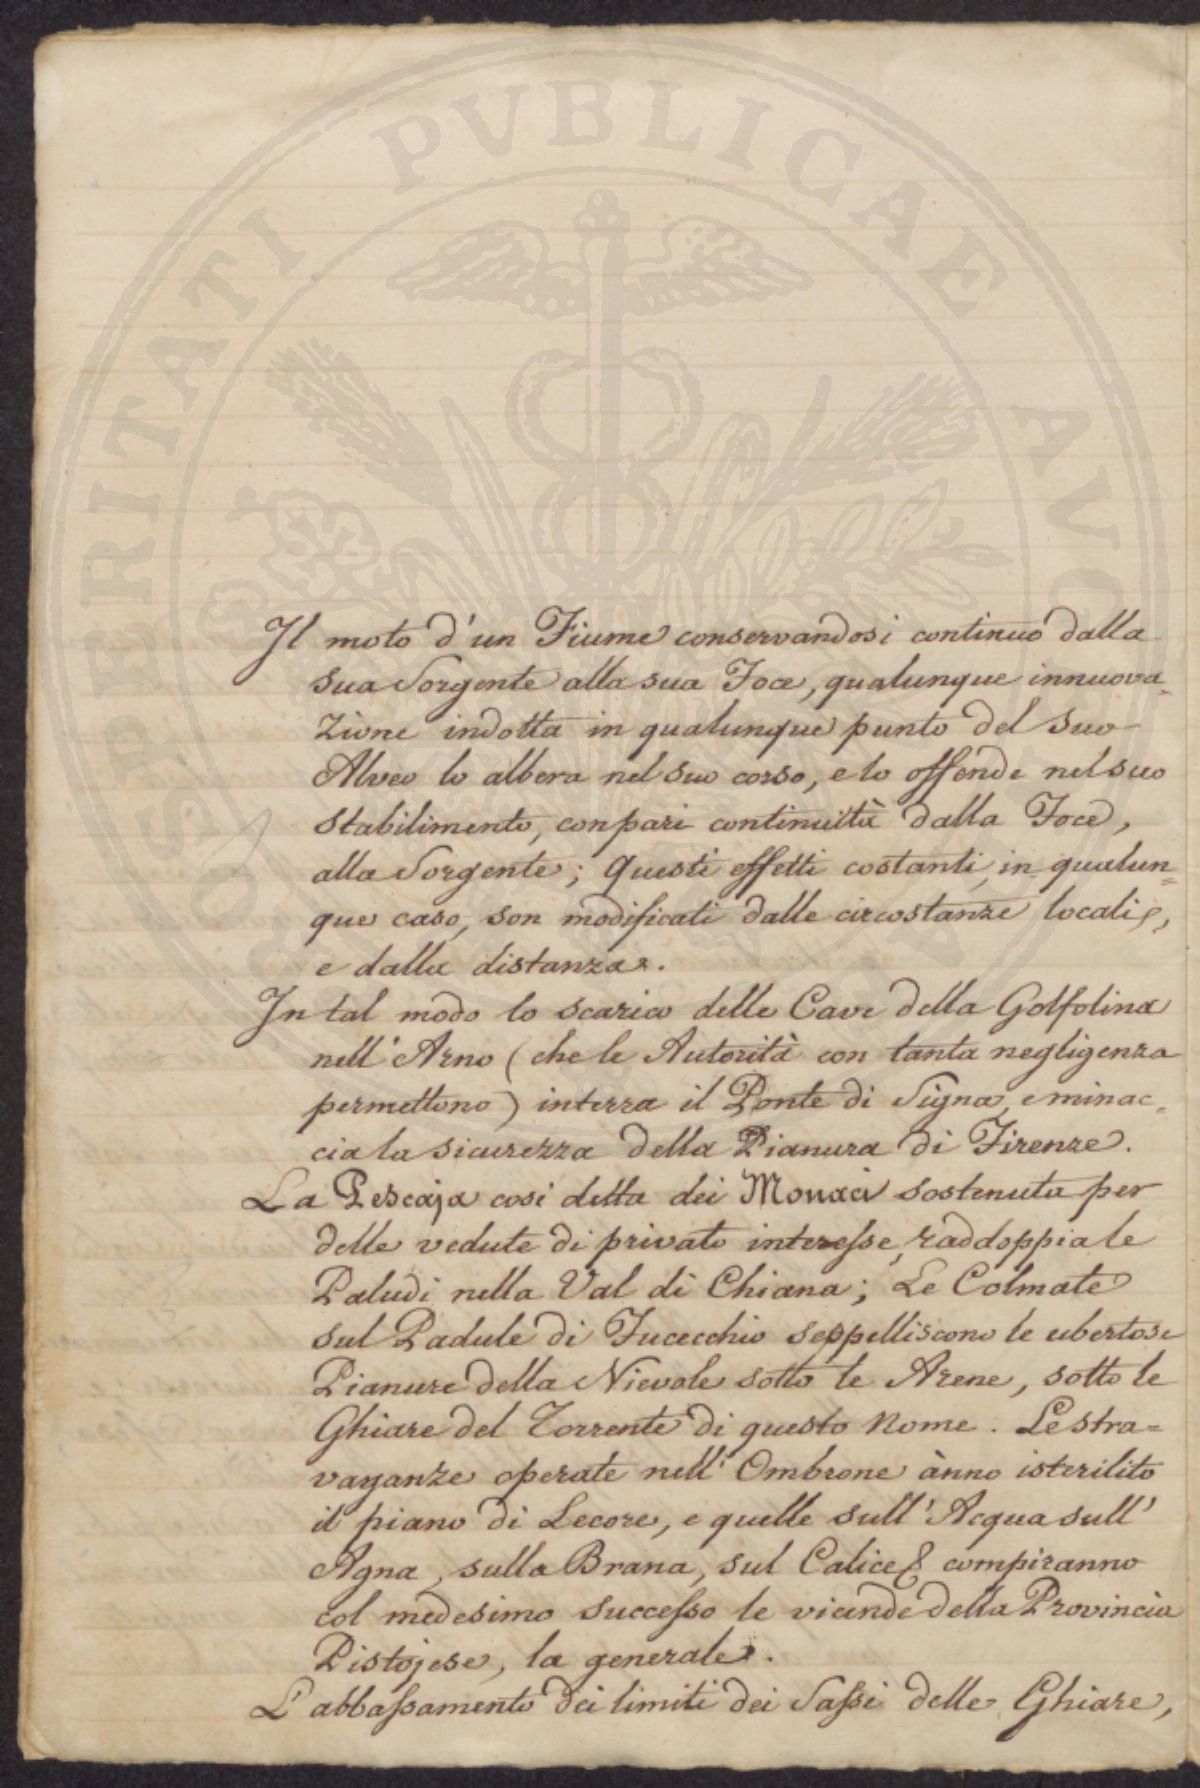 PROSPERITATI PVBLICAE AVGENDAE
Il moto d'un Fiume conservandosi continuo dalla
sua Sorgente alla sua Foce, qualunque innuova=
zione indotta in qualunque punto del suo
Alveo lo altera nel suo corso, e lo offende nel suo
stabilimento, con pari continuità dalla Foce,
alla Sorgente; Questi effetti costanti, in qualun=
que caso, son modificati dalle circostanze locali,
e dalla distanza.
In tal modo lo scarico delle Cave della Golfolina
nell'Arno (che le Autorità con tanta negligenza
permettono) interra il Ponte di Signa, e minac=
cia la sicurezza della Pianura di Firenze.
La Pescaja così detta dei Monaci sostenuta per
delle vedute di privato interesse, raddoppia le
Paludi nella Val di Chiana; Le Colmate
sul Padule di Fucecchio seppelliscono le ubertose
Pianure della Nievole sotto le Arene, sotto le
Ghiare del Torrente di questo Nome. Le stra=
vaganze operate nell'Ombrone ànno isterilito
il piano di Lecore, e quelle sull'Acqua sull'
Agna, sulla Brana, sul Calice & compiranno
col medesimo successo le vicende della Provincia
Pistojese, la generale.
L'abbassamento dei limiti dei Sassi delle Ghiare,